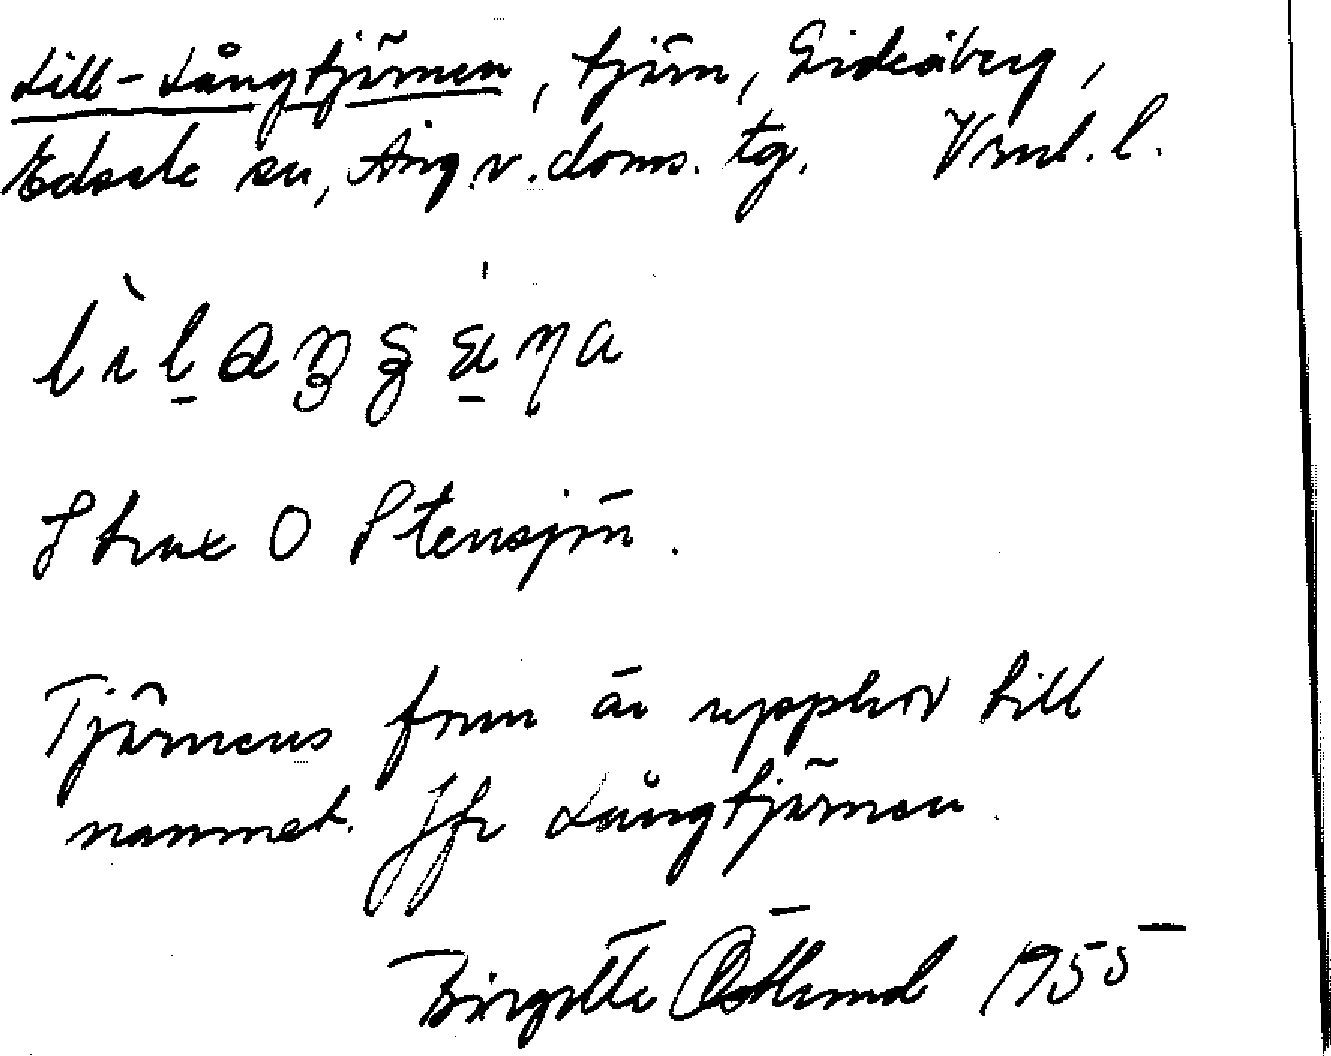 Lill-Långtjärnen, tjärn, Gideåberg,
Edsele sn, Ång. v. doms. tg. Vrml. l.
Strax O Stensjön.
Tjärnens form är upphov till
namnet. Jfr Långtjärnen
Birgitta Östlund 1955